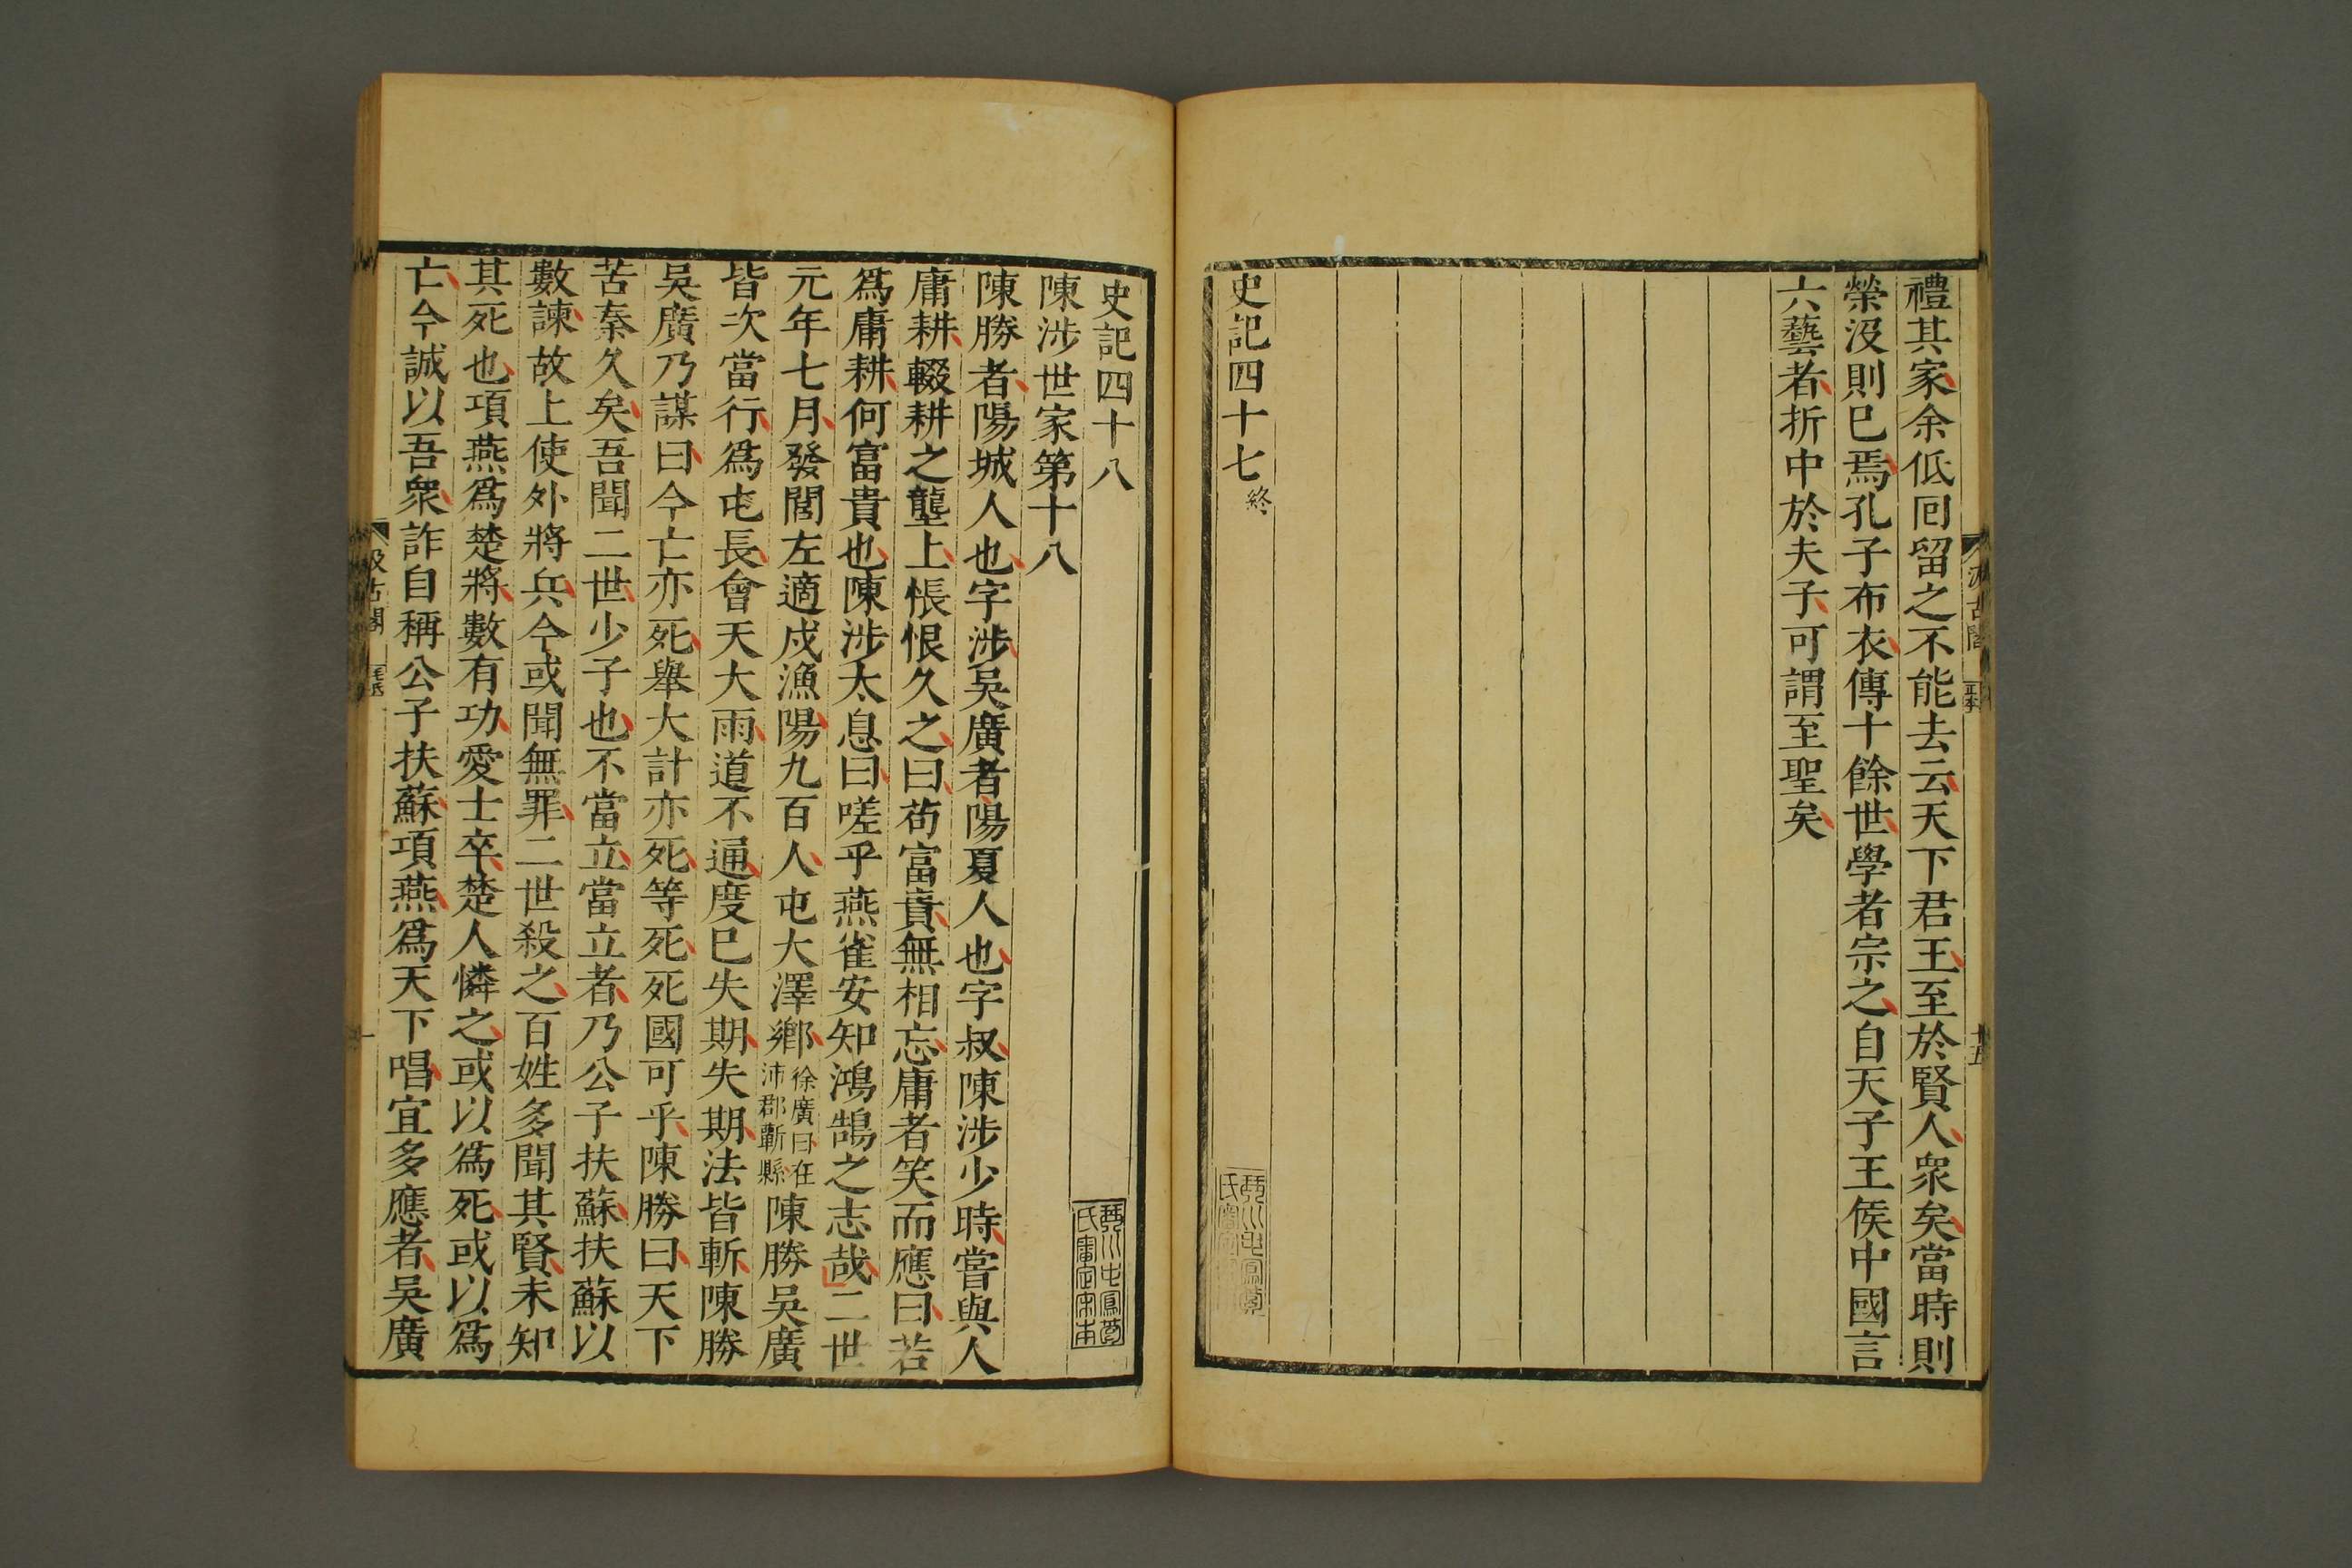 禮其家余低囘留之不能去云天下君王至於賢人衆矣當時則
榮沒則已焉孔子布衣傳十餘世學者宗之自天子王侯中國言
六藝者折中於夫子可謂至聖矣
史記四十七終
史記四十八
陳涉世家第十八
陳勝者陽城人也字涉吳廣者陽夏人也字叔陳涉少時嘗與人
庸耕輟耕之壟上悵恨久之曰苟富貴無相忘庸者笑而應曰若
爲庸耕何富貴也陳涉太息曰嗟乎燕雀安知鴻鵠之志哉二世
元年七月發閭左適戍漁陽九百人屯大澤鄉徐廣曰在沛郡蘄縣陳勝吳廣
皆次當行爲屯長會天大雨道不通度已失期失期法皆斬陳勝
吳廣乃謀曰今亡亦死舉大計亦死等死死國可乎陳勝曰天下
苦秦久矣吾聞二世少子也不當立當立者乃公子扶蘇扶蘇以
數諫故上使外將兵今或聞無罪二世殺之百姓多聞其賢未知
其死也項燕爲楚將數有功愛士卒楚人憐之或以爲死或以爲
亡今誠以吾衆詐自稱公子扶蘇項燕爲天下唱宜多應者吳廣